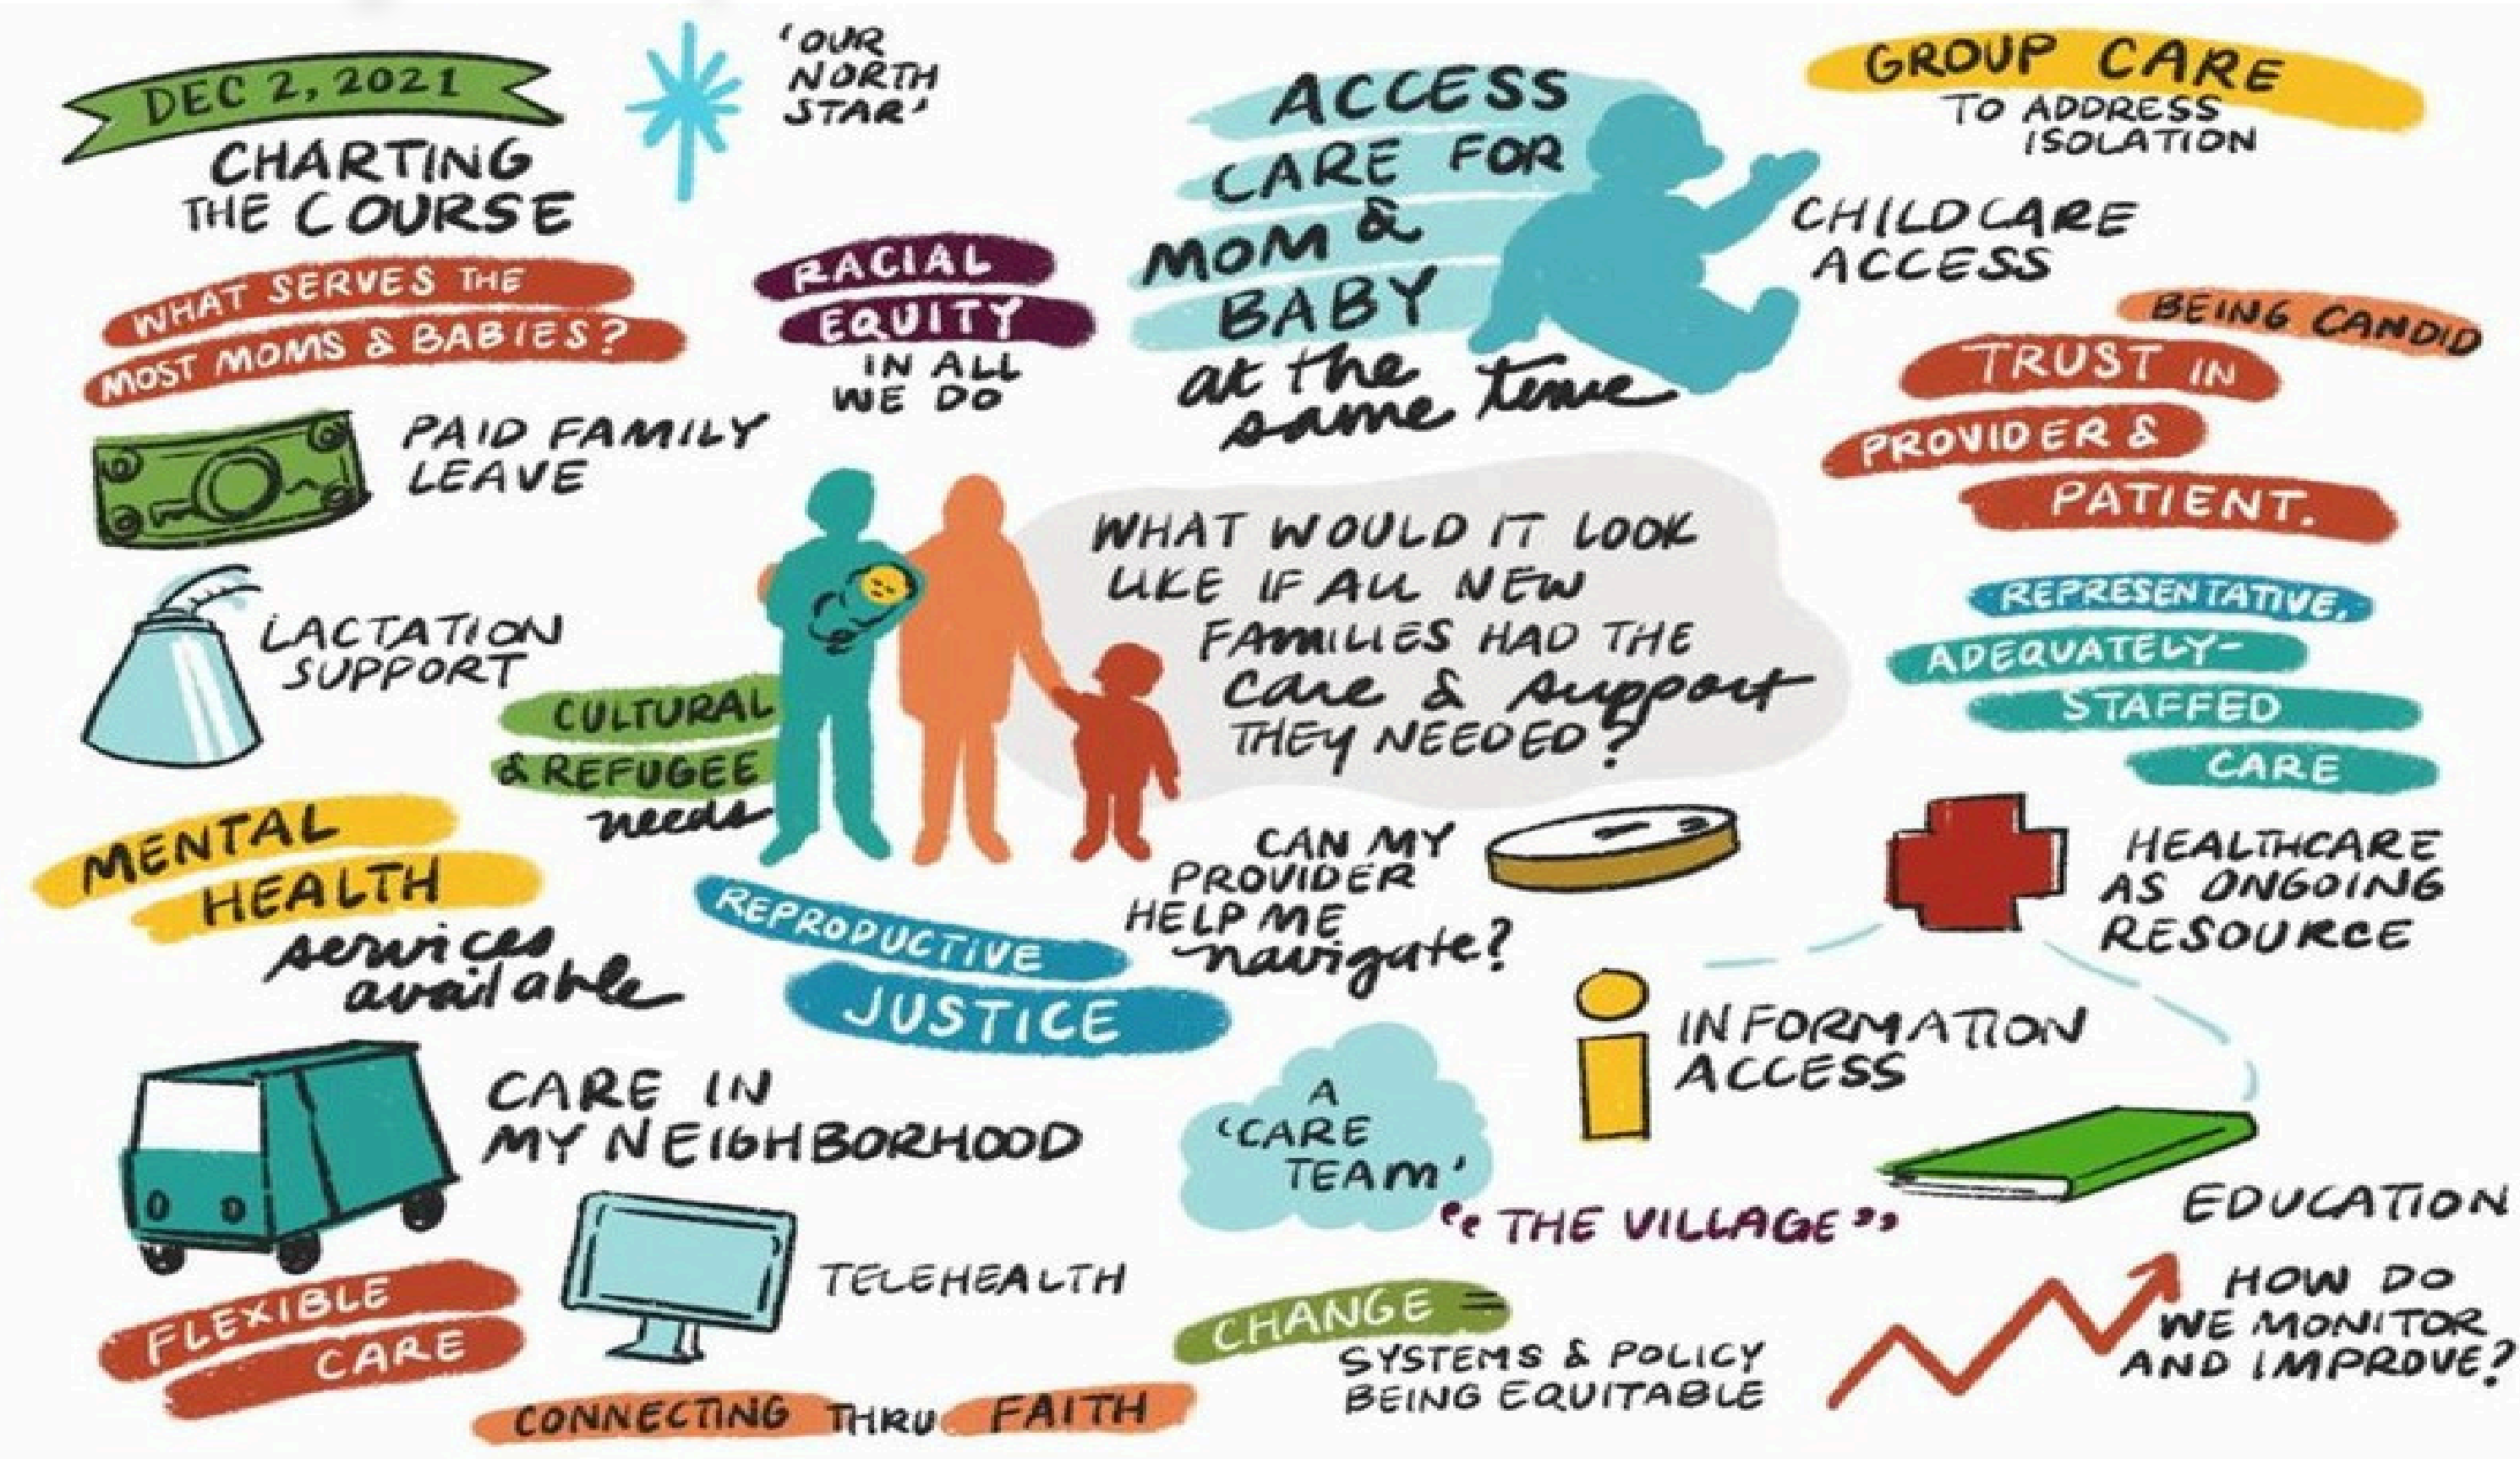 DEC 2, 2021
CHARTING
THE COURSE
'OUR
NORTH
STAR'
WHAT SERVES THE
MOST MOMS & BABIES?
RACIAL
EQUITY
IN ALL
WE DO
ACCESS
CARE FOR
MOM &
BABY
at the
same time
GROUP CARE
TO ADDRESS
ISOLATION
CHILDCARE
ACCESS
BEING CANDID
TRUST IN
PROVIDER &
PATIENT.
PAID FAMILY
LEAVE
LACTATION
SUPPORT
CULTURAL
& REFUGEE
needs
WHAT WOULD IT LOOK
LIKE IF ALL NEW
FAMILIES HAD THE
care & support
THEY NEEDED?
REPRESENTATIVE,
ADEQUATELY-
STAFFED
CARE
MENTAL
HEALTH
services
available
REPRODUCTIVE
JUSTICE
CAN MY
PROVIDER
HELP ME
navigate?
HEALTHCARE
AS ONGOING
RESOURCE
INFORMATION
ACCESS
CARE IN
MY NEIGHBORHOOD
A
'CARE
TEAM'
"THE VILLAGE"
EDUCATION
TELEHEALTH
FLEXIBLE
CARE
CHANGE =
SYSTEMS & POLICY
BEING EQUITABLE
HOW DO
WE MONITOR
AND IMPROVE?
CONNECTING THRU FAITH